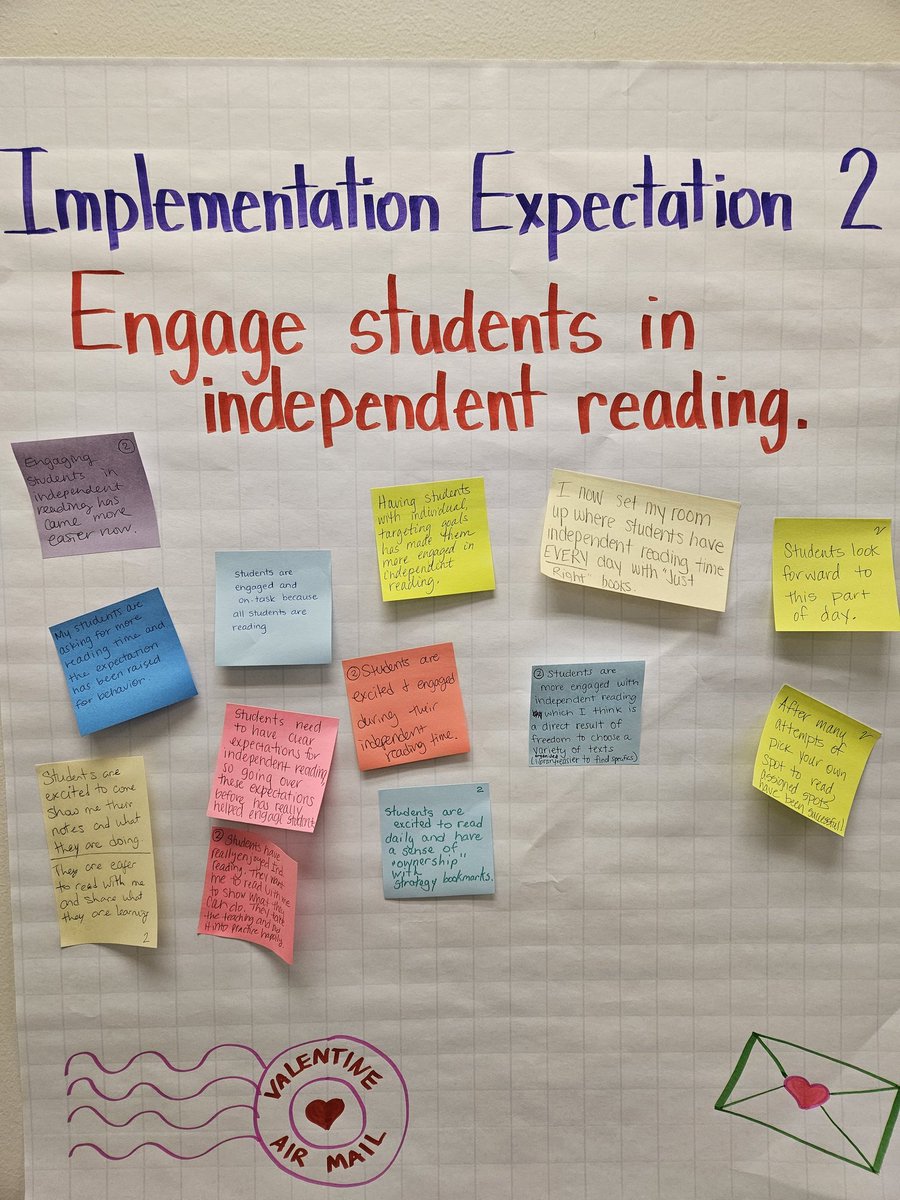 Implementation Expectation 2
Engage students in
independent reading.
Engaging ②
Students in
independent
reading has
came more
easier now.
Having students
with individual,
targeting goals
has made them
more engaged in
independent
reading.
I now set my room
up where students have
independent reading time
EVERY day with "Just
Right" books.
2
Students look
forward to
this part
of day.
My students are
asking for more
reading time and
the expectation
has been raised
for behavior.
Students are
engaged and
on-task because
all students are
reading
② Students are
excited & engaged
during their
independent
reading time.
② Students are
more engaged with
independent reading
which I think is
a direct result of
freedom to choose a
variety of texts
(library easier to find specifics)
2
After many
attempts of
pick your own
spot to read,
assigned spots
have been successful!
Students are
excited to come
show me their
notes and what
they are doing.
They are eager
to read with me
and share what
they are learning
2
Students need
to have clear
expectations for
independent reading
so going over
these expectations
before has really
helped engage students
② Students have
really enjoyed Ind.
reading. They want
me to read with me
to show what they
can do. They take
the teaching and put
it into practice happily.
2
Students are
excited to read
daily and have
a sense of
"ownership"
with
strategy bookmarks.
VALENTINE
AIR MAIL